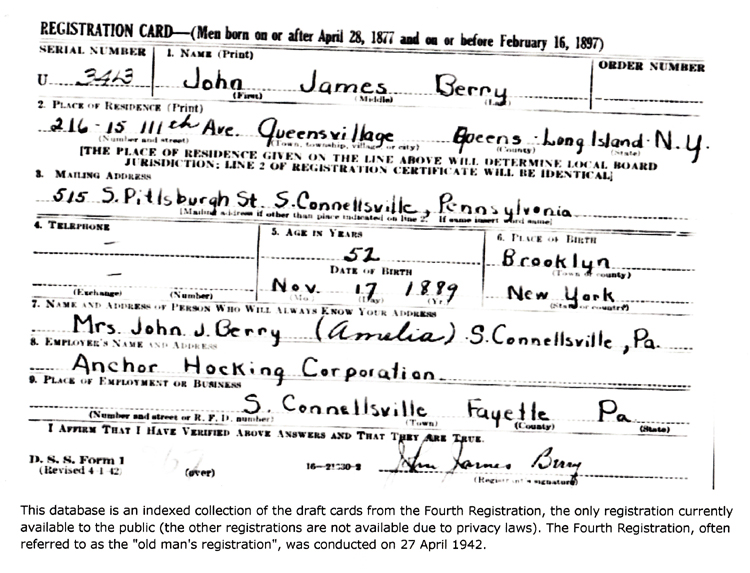 REGISTRATION CARD—(Men born on or after April 28, 1877 and on or before February 16, 1897)
SERIAL NUMBER 1. NAME (Print) ORDER NUMBER
U 3413 John James Berry
(First) (Middle) (Last)
2. PLACE OF RESIDENCE (Print)
216-15 111th Ave. Queensvillage Queens Long Island N.Y.
(Number and street) (Town, township, village, or city) (County) (State)
[THE PLACE OF RESIDENCE GIVEN ON THE LINE ABOVE WILL DETERMINE LOCAL BOARD
JURISDICTION; LINE 2 OF REGISTRATION CERTIFICATE WILL BE IDENTICAL]
3. MAILING ADDRESS
515 S. Pittsburgh St. S. Connellsville, Pennsylvania
[Mailing address if other than place indicated on line 2. If same insert word same]
4. TELEPHONE 5. AGE IN YEARS 6. PLACE OF BIRTH
– 52 Brooklyn
DATE OF BIRTH (Town or county)
– Nov. 17 1889 New York
(Exchange) (Number) (Mo.) (Day) (Yr.) (State or country)
7. NAME AND ADDRESS OF PERSON WHO WILL ALWAYS KNOW YOUR ADDRESS
Mrs. John J. Berry (Amelia) S. Connellsville, Pa.
8. EMPLOYER'S NAME AND ADDRESS
Anchor Hocking Corporation
9. PLACE OF EMPLOYMENT OR BUSINESS
S. Connellsville Fayette Pa
(Number and street or R. F. D. number) (Town) (County) (State)
I AFFIRM THAT I HAVE VERIFIED ABOVE ANSWERS AND THAT THEY ARE TRUE.
D. S. S. Form 1
(Revised 4-1-42) (over) John James Berry
(Registrant's signature)
This database is an indexed collection of the draft cards from the Fourth Registration, the only registration currently
available to the public (the other registrations are not available due to privacy laws). The Fourth Registration, often
referred to as the "old man's registration", was conducted on 27 April 1942.